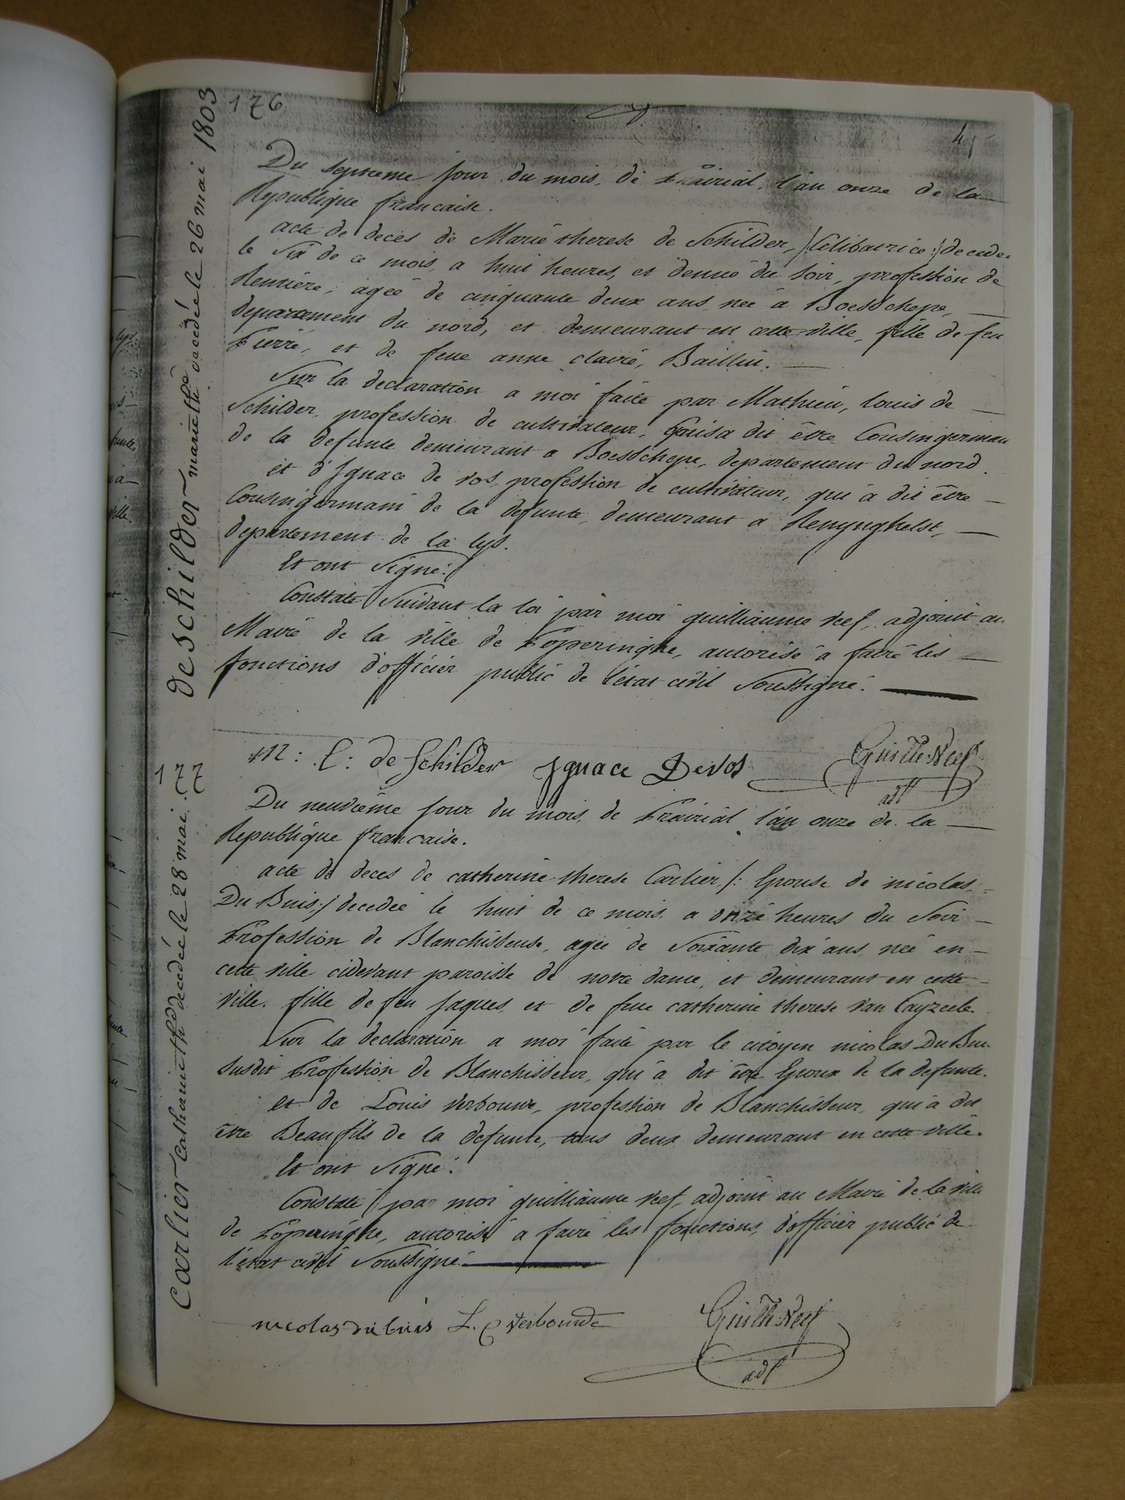 176
41
deschilder marie thê décédé le 26 mai 1803
Du septieme jour du mois de Prairial, l'an onze de la
Republique francaise.
acte de deces de Marie therese de Schilder, /: Celibatrice :/ decedee
le six de ce mois, a huit heures, et demie du soir, profession de
Rentiere, agée de cinquante deux ans née à Boesschepe,
departement du nord, et demeurant en cette ville, fille de feu
Pierre, et de feue anne claire, Baillieu.
Sur la declaration a moi faite par Mathieu, louis de
Schilder, profession de cultivateur, qui a dit être Cousin germain
de la defunte demeurant a Boesschepe, departement du nord.
et d'Ignace de vos, profession de cultivateur, qui à dit être
Cousin germain de la defunte, demeurant a Renynghelst,
departement de la lys.
Et ont signé :/
Constaté suivant la loi par moi guilliaume Neef, adjoint au
Maire de la ville de Poperinghe, autorisé a faire les
fonctions d'officier public de l'état civil soussigné.
M: L: de Schilder Ignace Devos Guill. Neef
adj.t
177
Carlier catharine thê décédé le 28 mai.
Du neuvième jour du mois de Prairial l'an onze de la
Republique francaise.
acte de deces de catherine therese Carlier /: Epouse de nicolas
Du Buis :/ decedée le huit de ce mois, a onze heures du Soir
Profession de Blanchisseuse, agée de Soixante dix ans née en
cette ville cidevant paroisse de notre dame, et demeurant en cette
ville, fille de feu Jaques, et de feue catherine therese van Cayzeele
Sur la declaration a moi faite par le citoyen nicolas Du Buis
susdit Profession de Blanchisseur, qui à dit être Epoux de la defunte.
et de Louis Verbouwe, profession de Blanchisseur, qui à dit
être Beaufils de la defunte, tous deux demeurant en cette ville.
Et ont signé :
Constaté par moi guilliaume Neef, adjoint au Maire de la ville
de Poperinghe, autorisé a faire les fonctions d'officier public de
l'état civil soussigné.
nicolas du buis L. C Verbouwe Guill. Neef
adj.t